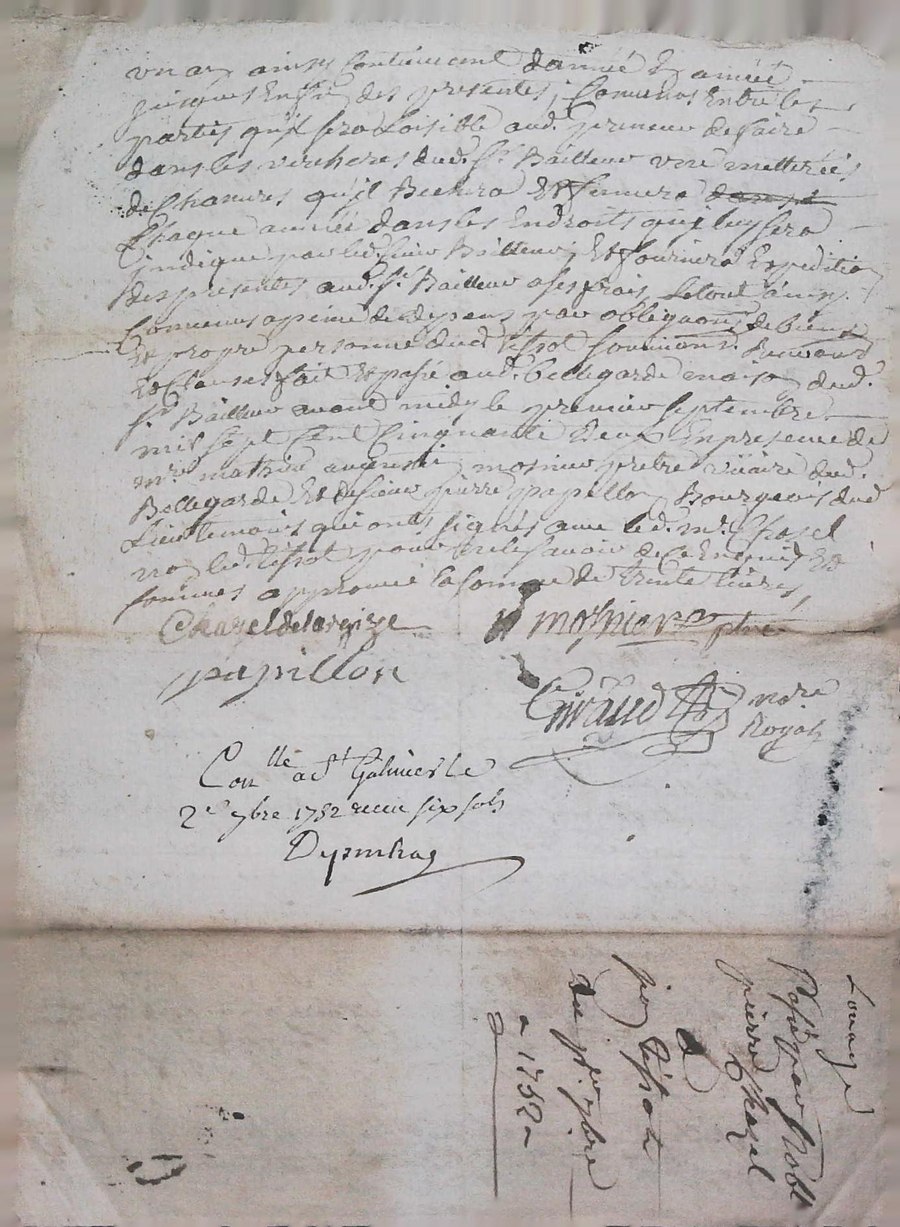 un an ainsy Continuant d'année En année
jusques En fin des presentes, Convenus Entre les
parties qu'il sera Loisible aud. preneur de faire
dans les vercheres dud. Sr. Bailleur
de Chanvres qu'il Bechera Et fumera dans le
Chaque année dans les Endroits qui luy sera
jndiqué par led. sieur Bailleur, Et fournira Expedition
des presentes aud. Sr. Bailleur a ses frais, Le tout ainsy
Convenus a peine de depens par obligaon. de biens
Et propre personne dud. tissot soumissons. Renonons.
Et Clauses, fait Et passé aud. bellegarde maison dud.
Sr. Bailleur avant midy le premier septembre
mil sept Cent Cinquante deux En presence de
mre. mathieu augustin mosnier pretre vicaire dud.
Bellegarde Et de sieur pierre papillon Bourgeois dud.
Lieu temoins qui ont signés avec le d. mr. Chazel
non led. tissot pour ne le savoir de Ce Enquis Et
sommes approuvé la somme de trente livres,
Chazel
Mosnier ptre
papillon
Giraud nore
Royal
Conllé a St Galmier le
2e 7bre 1752 recu six sols
Louage
Passé par Noble
pierre Chazel
a
jean tissot
du pr. 7bre
1752